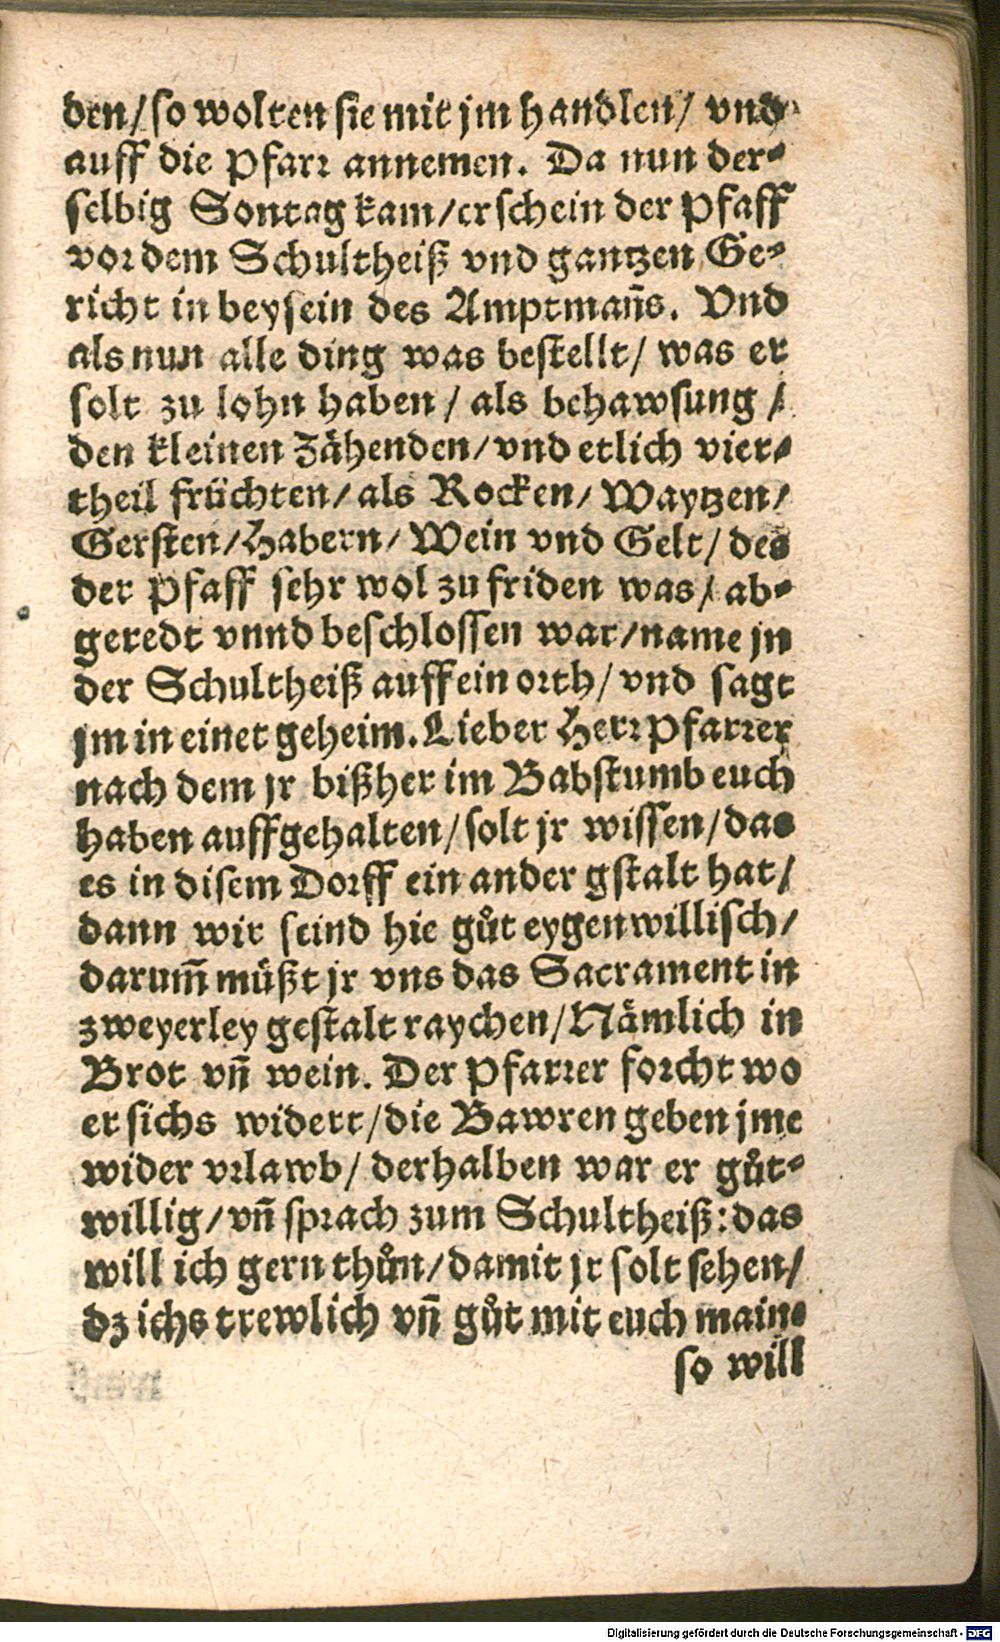 den/ so wolten sie mit jm handlen/ vnd
auff die Pfarr annemen. Da nun der-
selbig Sontag kam/ erschein der Pfaff
vor dem Schultheiß vnd gantzen Ge-
richt in beysein des Amptmañs. Vnd
als nun alle ding was bestellt/ was er
solt zu lohn haben/ als behawsung/
den kleinen Zähenden/ vnd etlich vier-
theil früchten/ als Rocken/ Waytzen/
Gersten/ Habern/ Wein vnd Gelt/ des
der Pfaff sehr wol zu friden was/ ab-
geredt vnnd beschlossen war/ name jn
der Schultheiß auff ein orth/ vnd sagt
jm in einer geheim. Lieber Herr Pfarrer
nach dem jr bißher im Babstumb euch
haben auffgehalten/ solt jr wissen/ das
es in disem Dorff ein ander gstalt hat/
dann wir seind hie gůt eygenwillisch/
darum̃ müßt jr vns das Sacrament in
zweyerley gestalt raychen/ Nämlich in
Brot vñ wein. Der Pfarrer forcht wo
er sichs widert/ die Bawren geben jme
wider vrlawb/ derhalben war er gůt-
willig/ vñ sprach zum Schultheiß: das
will ich gern thůn/ damit jr solt sehen/
dz ichs trewlich vñ gůt mit euch main-
so will
Digitalisierung gefördert durch die Deutsche Forschungsgemeinschaft - DFG